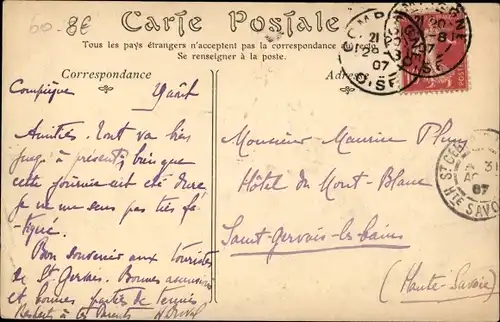 60. 8€
Carte Postale
Tous les pays étrangers n'acceptent pas la correspondance
Se renseigner à la poste.
Correspondance
Adresse
COMPIEGNE
OISE
21
29
07
20
07
OISE
Compiègne 29 août
Amitiés. Tout va bien
jusqu'à présent, bien que
cette journée ait été dure,
je ne me sens pas très fa-
tigué.
Bon souvenir aux touristes
de St Gervais. Bonnes ascensions
et bonnes parties de tennis
Respects à tes Parents
Monsieur Maurice
Hôtel du Mont-Blanc
Saint-Gervais-les-bains
(Haute-Savoie)
31
07
HTE SAVOIE